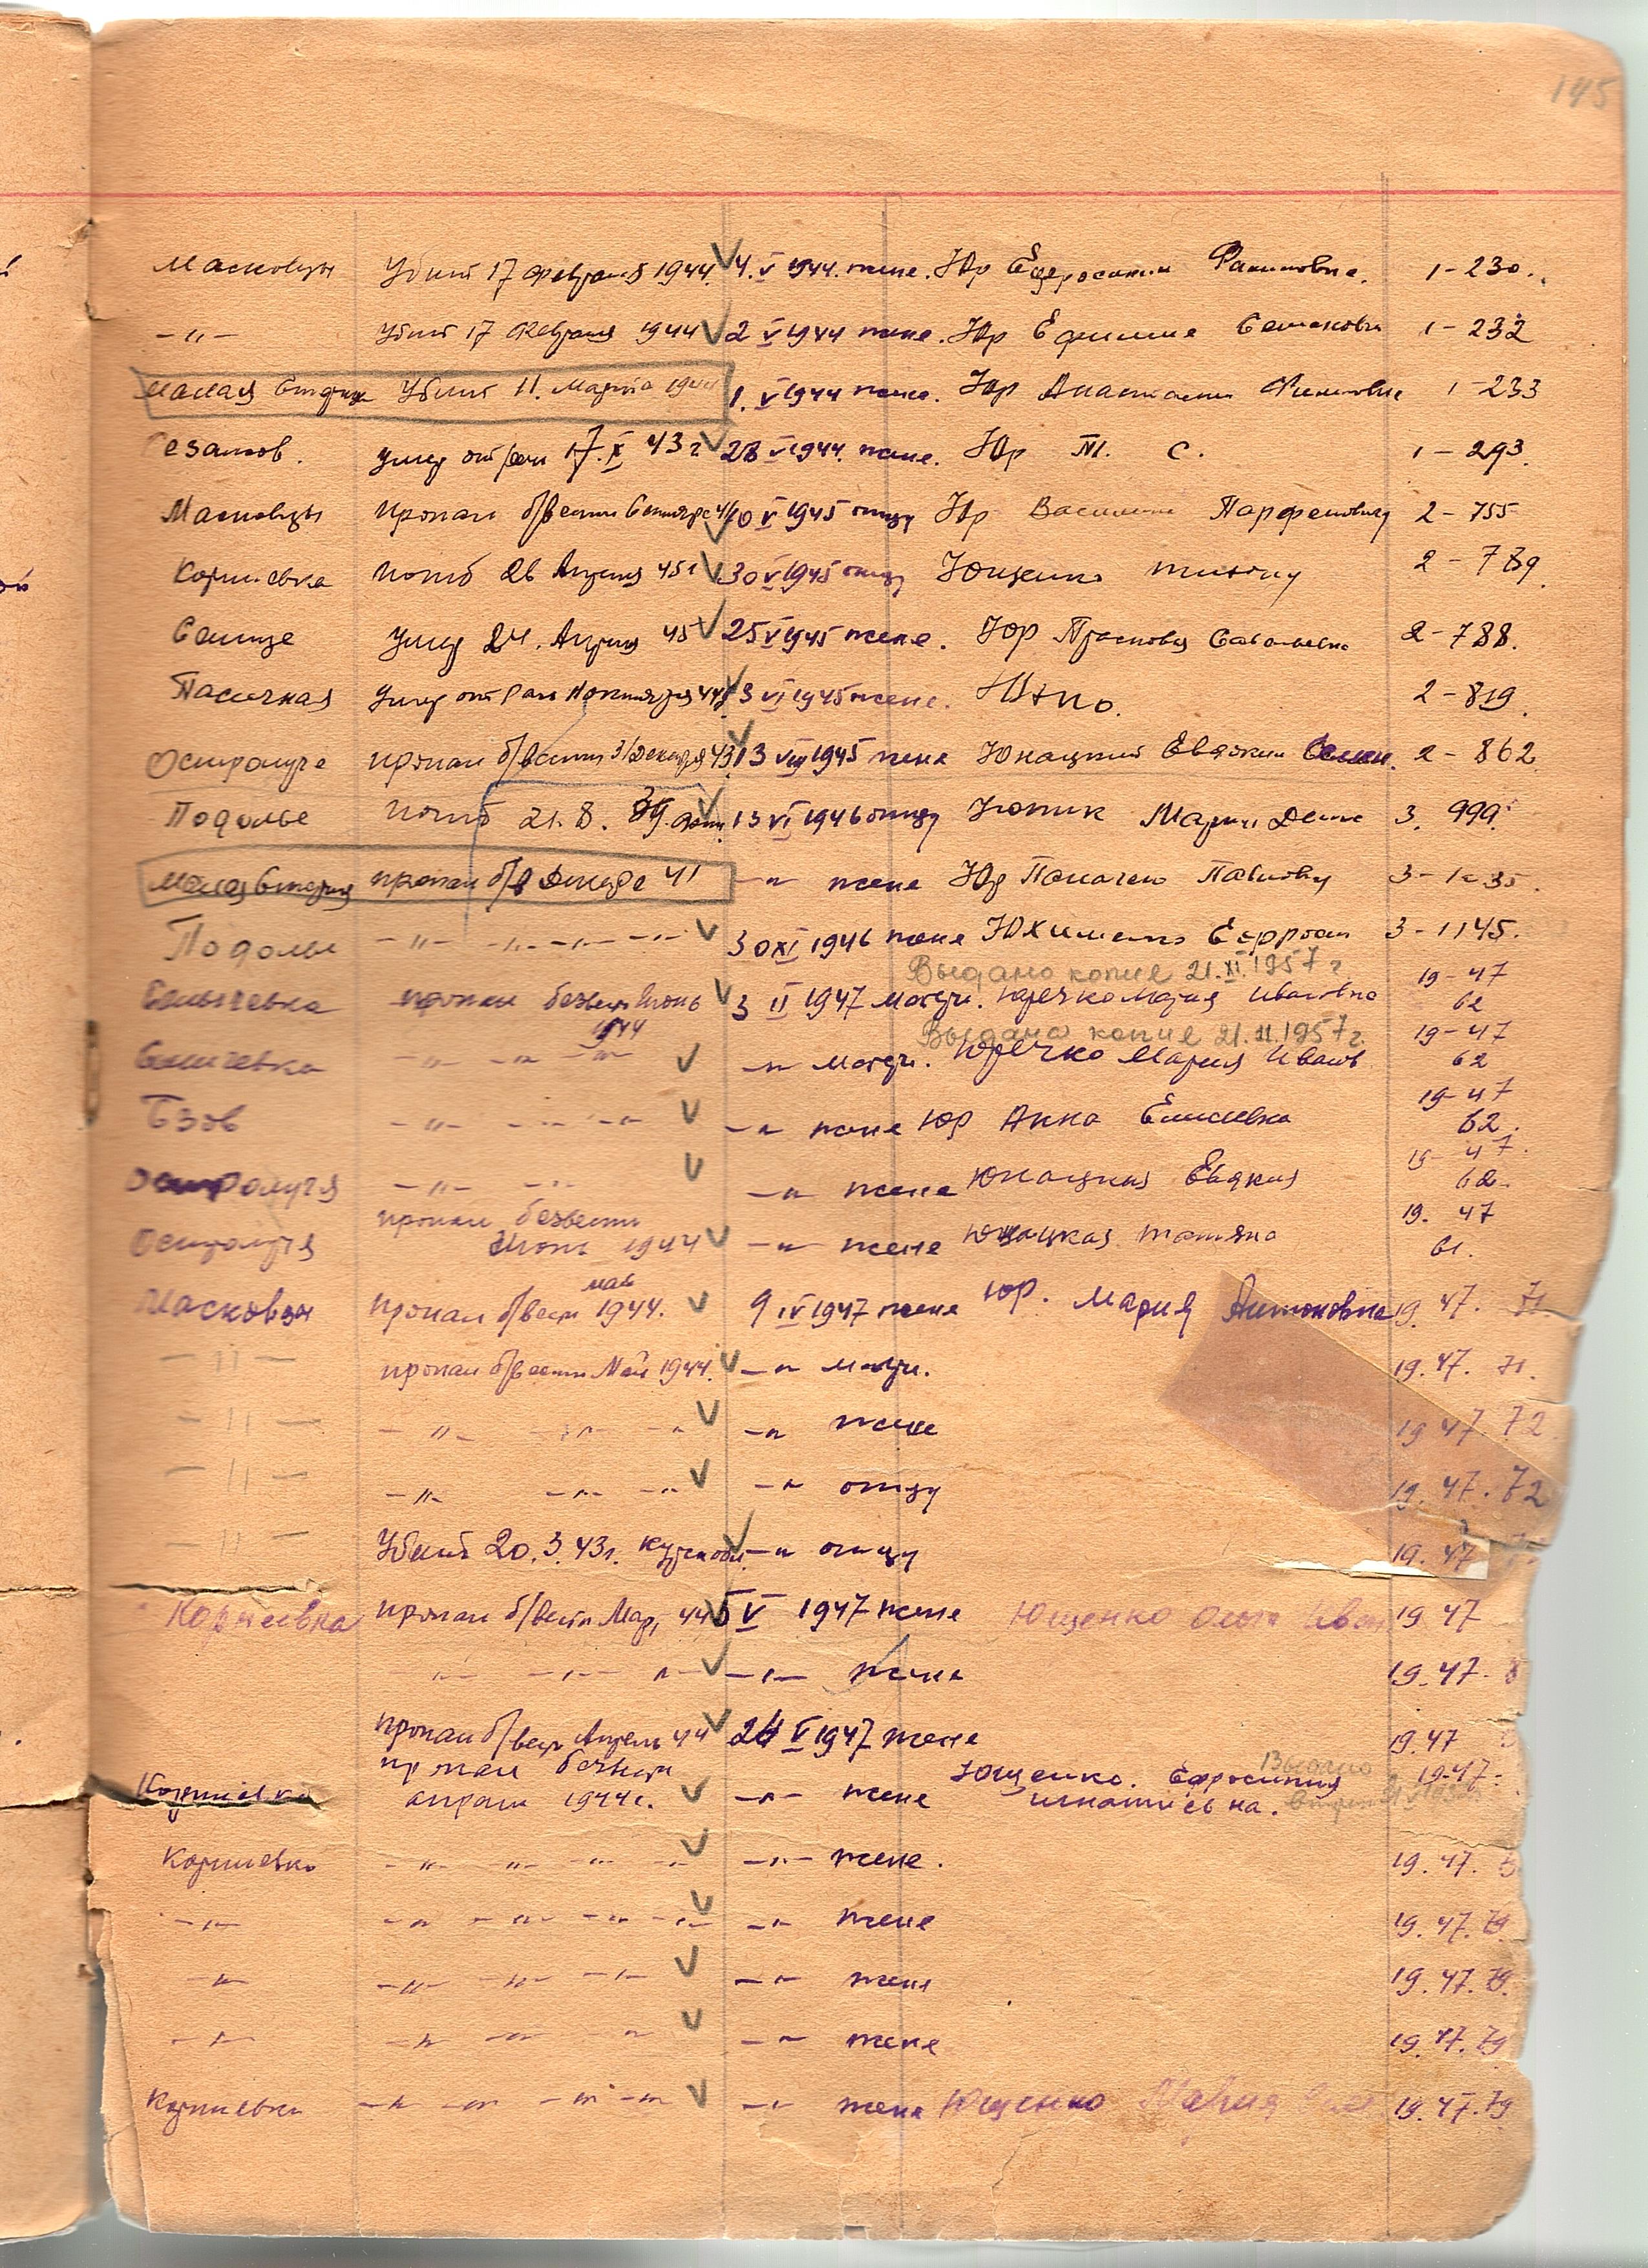 145
Масковцы Убит 17 февраля 1944. 4. V 1944. жене. Юр 1-230.
-"- Убит 17 февраля 1944 2 V 1944 жене. Юр 1-232
Малая Убит 11. Марта 1944 1. V 1944 жене. Юр Анастасии 1-233
умер от ран 17. X 43 г 28 V 1944. жене. Юр М. С. 1-293.
Масковцы пропал б/вести Сентябре 41 10 V 1945 отцу Юр Василию Парфеновичу 2-755
Корниевка погиб 26 Апреля 45г 30 V 1945 отцу Ющенко 2-789.
Селище умер 24. Апреля 45 25 V 1945 жене. Юр Прасковья Савельевна 2-788.
Пасечная умер от ран 3 VI 1945 жене. 2-819.
Остролучье пропал б/вести 31 декабря 43 13 VIII 1945 жене Юнацкий Евдокии Семен. 2-862
Подолье погиб 21. 8. 13 VI 1946 отцу Юпик 3. 999.
Малая пропал б/в Декабре 41 -"- жене Юр 3-1035.
Подолье -"- -"- -"- -"- 30 XI 1946 жене Юхименко 3-1145.
Выдано копие 21. XI. 1957 г.
пропал безвести Июнь 1944 3 II 1947 матери. Юречко Мария Ивановна 19-47 62
Выдано копие 21. 11. 1957 г.
-"- -"- -"- -"- матери. Юречко Мария Иванов 19-47 62
Бзов -"- -"- -"- -"- жене Юр Анна Елисеевна 19-47 62.
Остролучя -"- -"- -"- жене Юнацкия Евдокия 19-47. 62.
Остролучя пропал безвести Июнь 1944 -"- жене Юнацкая Татьяна 19. 47 61.
Масковцы пропал б/вести май 1944. 9 IV 1947 жене Юр. Мария Антоновна 19. 47. 71.
-"- пропал б/вести Май 1944. -"- матери. 19. 47. 71.
-"- -"- -"- -"- -"- жене 19. 47. 72
-"- -"- -"- -"- -"- отцу 19. 47. 72
-"- Убит 20. 3. 43г. -"- отцу 19. 47
Корнеевка пропал б/вести Мар, 44 5 V 1947 жене Ющенко Ольга Иван 19. 47
-"- -"- -"- -"- жене 19. 47.
пропал б/вести Апрель 44 24 V 1947 жене 19. 47
Корниевка пропал безвести апрель 1944г. -"- жене Ющенко. Ефросиния Игнатьевна. Выдано 19-47-
Корниевка -"- -"- -"- -"- -"- жене. 19. 47.
-"- -"- -"- -"- -"- -"- жене 19. 47. 79
-"- -"- -"- -"- -"- жене 19. 47. 79.
-"- -"- -"- -"- -"- жене 19. 47. 79
Корниевка -"- -"- -"- -"- -"- жена Ющенко Мария 19. 47. 79